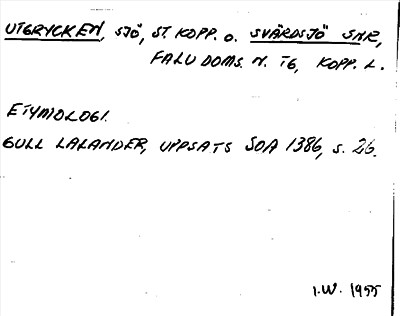 UTGRYCKEN, SJÖ, ST. KOPP. O. SVÄRDSJÖ SNR,
FALU DOMS. N. TG, KOPP. L.
ETYMOLOGI.
GULL LALANDER, UPPSATS SOA 1386, s. 26.
I.W. 1955